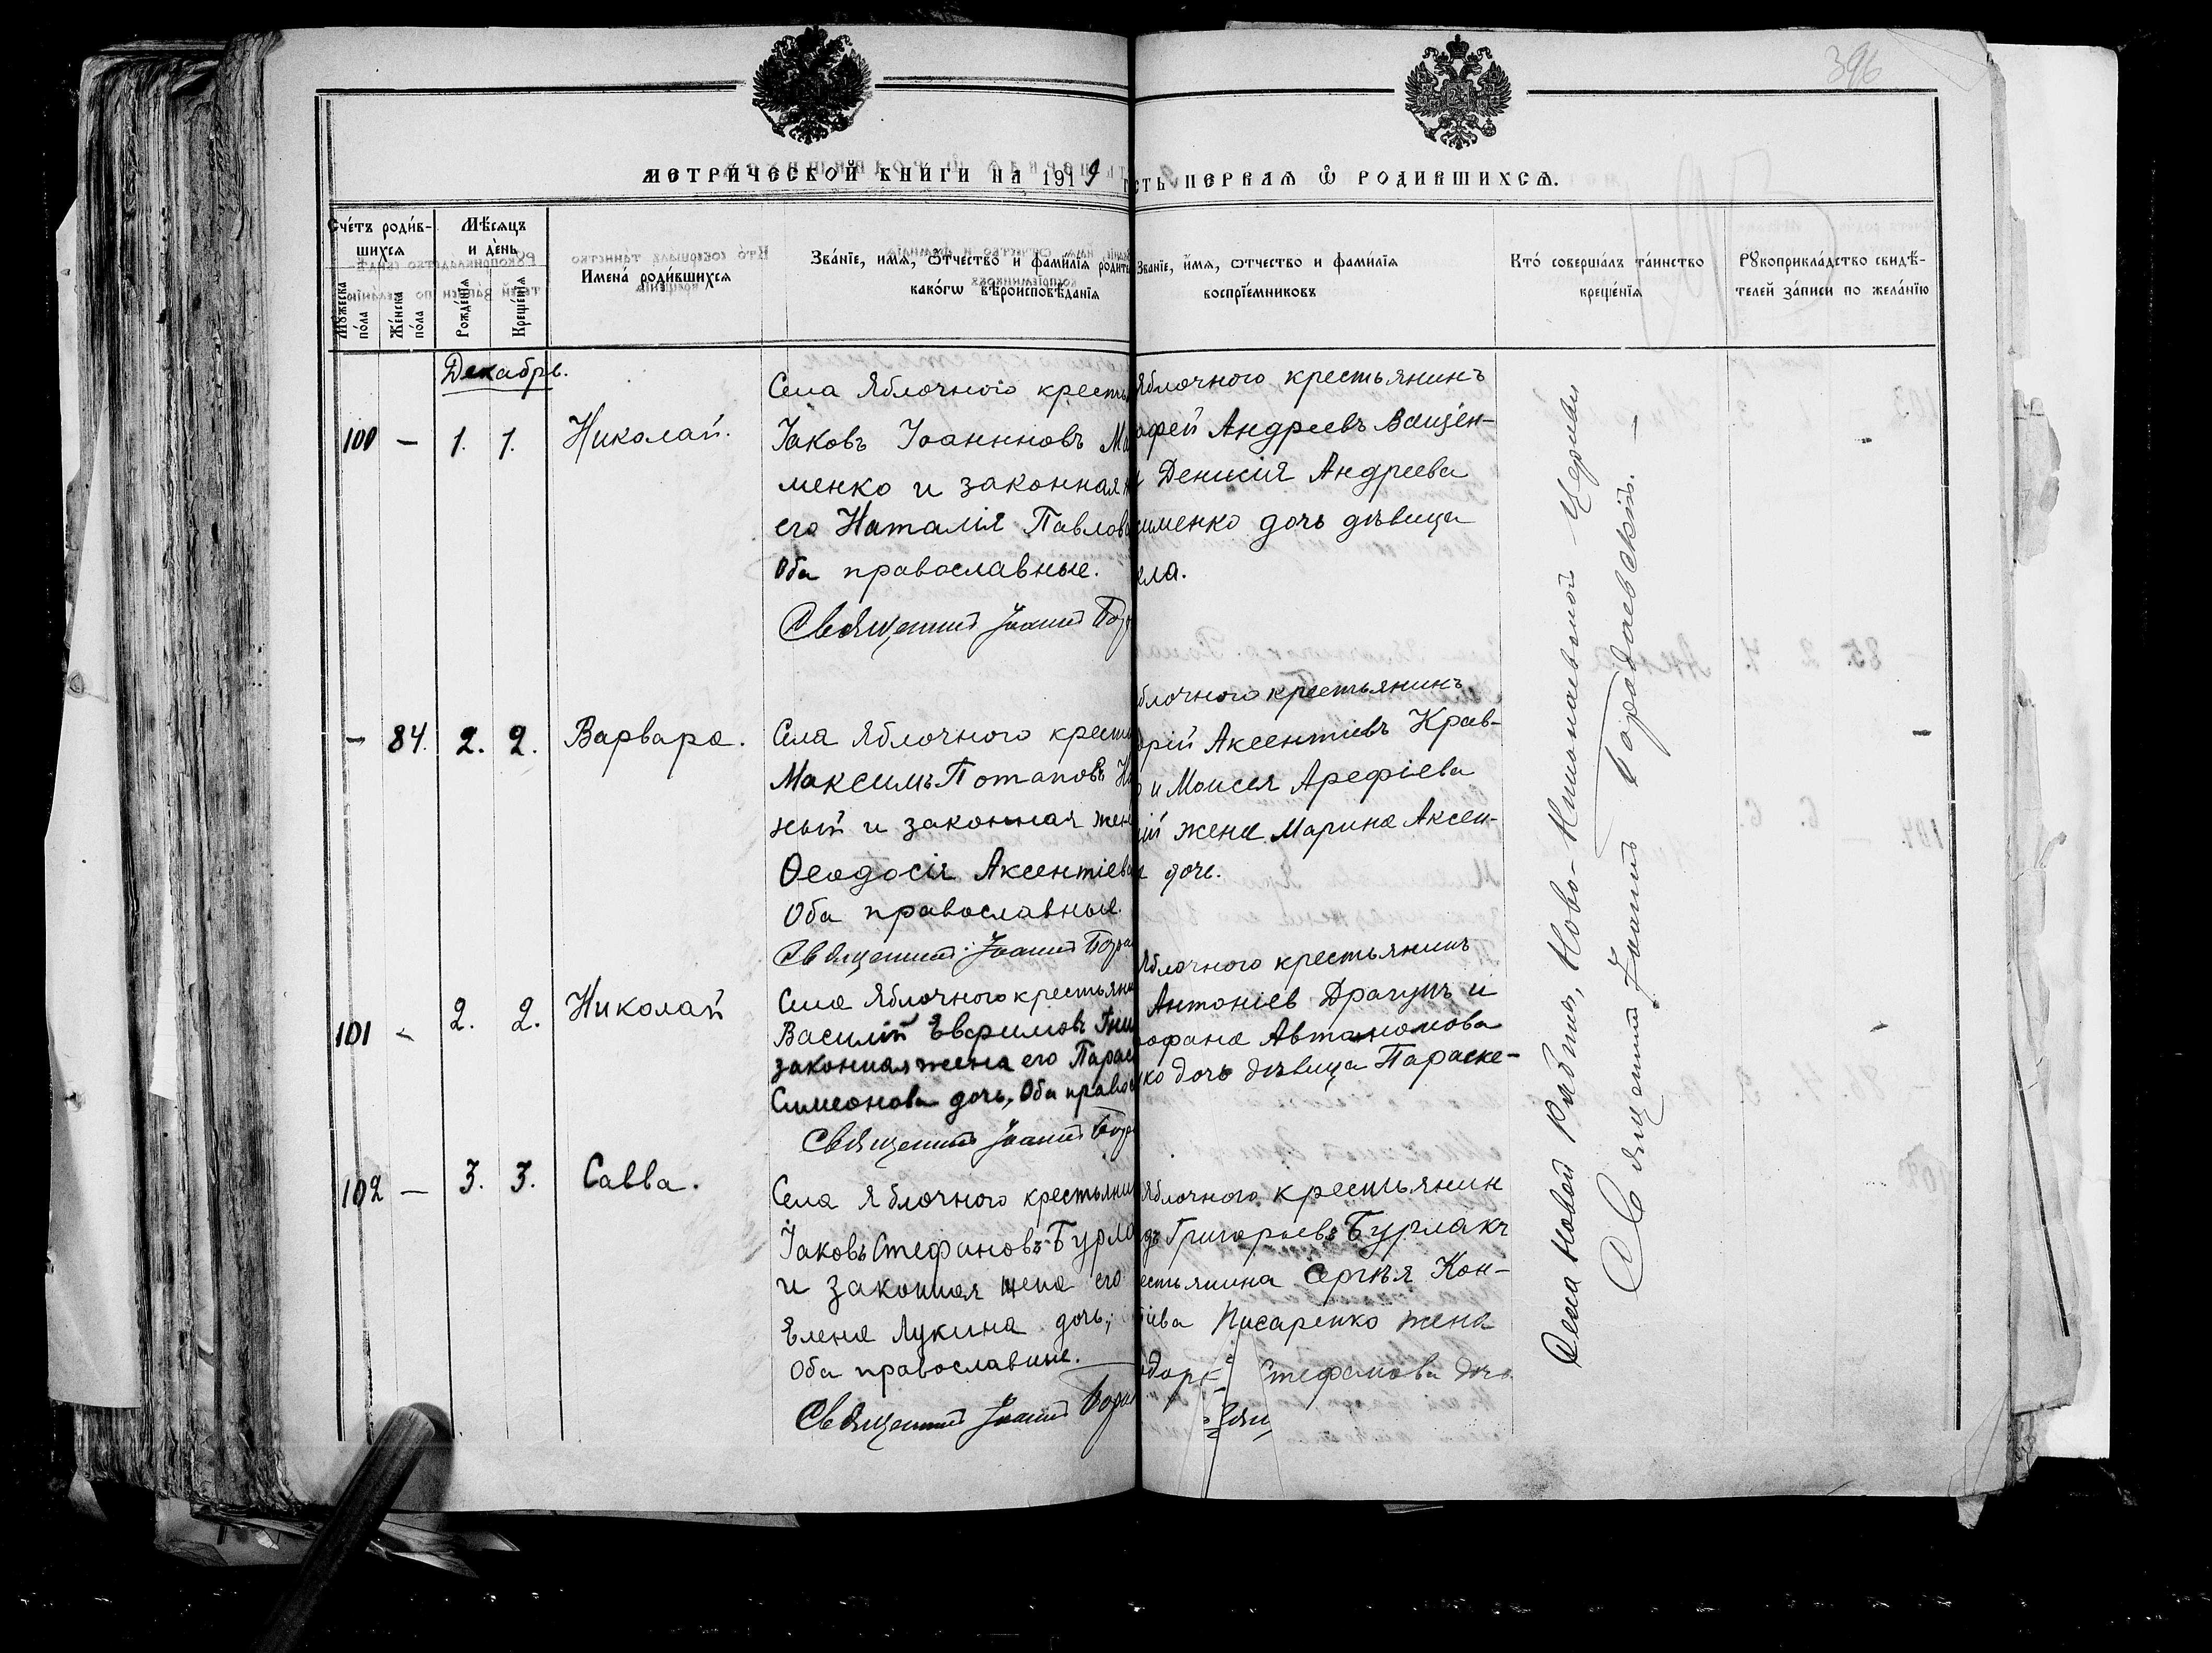 396
МЕТРИ́ЧЕСКОЙ КНИ́ГИ НА 1919
СТЬ ПЕРВАЯ Ѽ РОДИВШИХСЯ.
Счéтъ роди́в-
шихся
Му́жеска
пóла
Же́нска
пóла
Мѣ́сяцъ
и де́нь
Рожде́нїя
Креще́нїя
Имена́ роди́вшихся
Зва́нїе, и́мя, ѻ́тчество и фами́лїя родит
како́гѡ вѣроисповѣ́данїя
Зва́нїе, и́мя, ѻ́тчество и фами́лїя
воспрїе́мниковъ
Кто́ соверша́лъ та́инство
креще́нїя
Рꙋкоприкла́дство свидѣ́-
телей за́писи по жела́нїю
Декабрь.
100 — 1. 1. Николай.
Села Яблочного кресть
Іаковъ Іоанновъ Ма
менко и законная
его Наталія Павлов
Оба православные.
Священник Іоанн Бор
Яблочного крестьянинъ
фей Андреевъ Ващен-
Денисія Андреева
именко дочь дѣвица
ела.
— 84. 2. 2. Варвара.
Села Яблочного кресть
Максимъ Потаповъ
ный и законная жен
Ѳеодосія Аксентіев
Оба православные.
Священник Іоанн Бора
блочного крестьянинъ
орій Аксентіевъ Крав-
и Моисея Арефіева
ій жена Марина Аксен-
дочь.
101 - 2. 2. Николай
Села Яблочного крестьяни
Василій Евфимовъ
законная жена его Парас
Симеонова дочь, Оба право
Священник Іоанн Бор
Яблочного крестьянинъ
Антоніев Драгунъ и
офана Автономова
ко дочь дѣвица Параске-
102 — 3. 3. Савва.
Села Яблочного крестьянин
Іаковъ Стефановъ Бурла
и законная жена его
Елена Лукина дочь;
Оба православные.
Священник Іоанн Бора
Яблочного крестьянин
дъ Григорьевъ Бурлакъ
естьянина Сергѣя Кон-
іева Писаренко жена
Стефанова дочь.
Села Новой Рябины, Ново-Николаевской Церкви
Священник Іоаннъ Бородаевскій. —